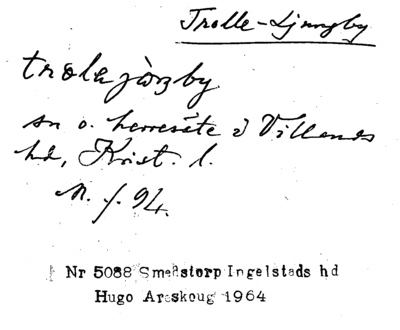 Trolle-Ljungby
trolajòŋby
sn o. herresäte i Villands
hd, Krist. l.
M. f. 94.
Nr 5088 Smedstorp Ingelstads hd
Hugo Areskoug 1964